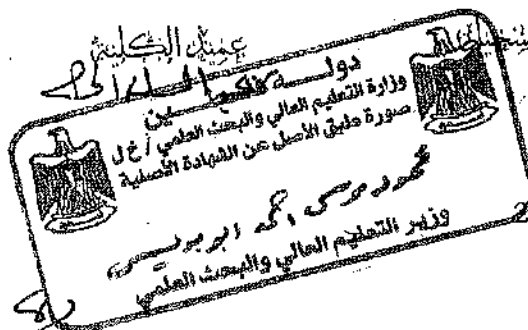 عميد الكلية
دولـــة فلسطيـــن
وزارة التعليم العالي والبحث العلمي / خ ل
صورة طبق الأصل عن الشهادة الأصلية
محمود موسى احمد ابو
وزير التعليم العالي والبحث العلمي